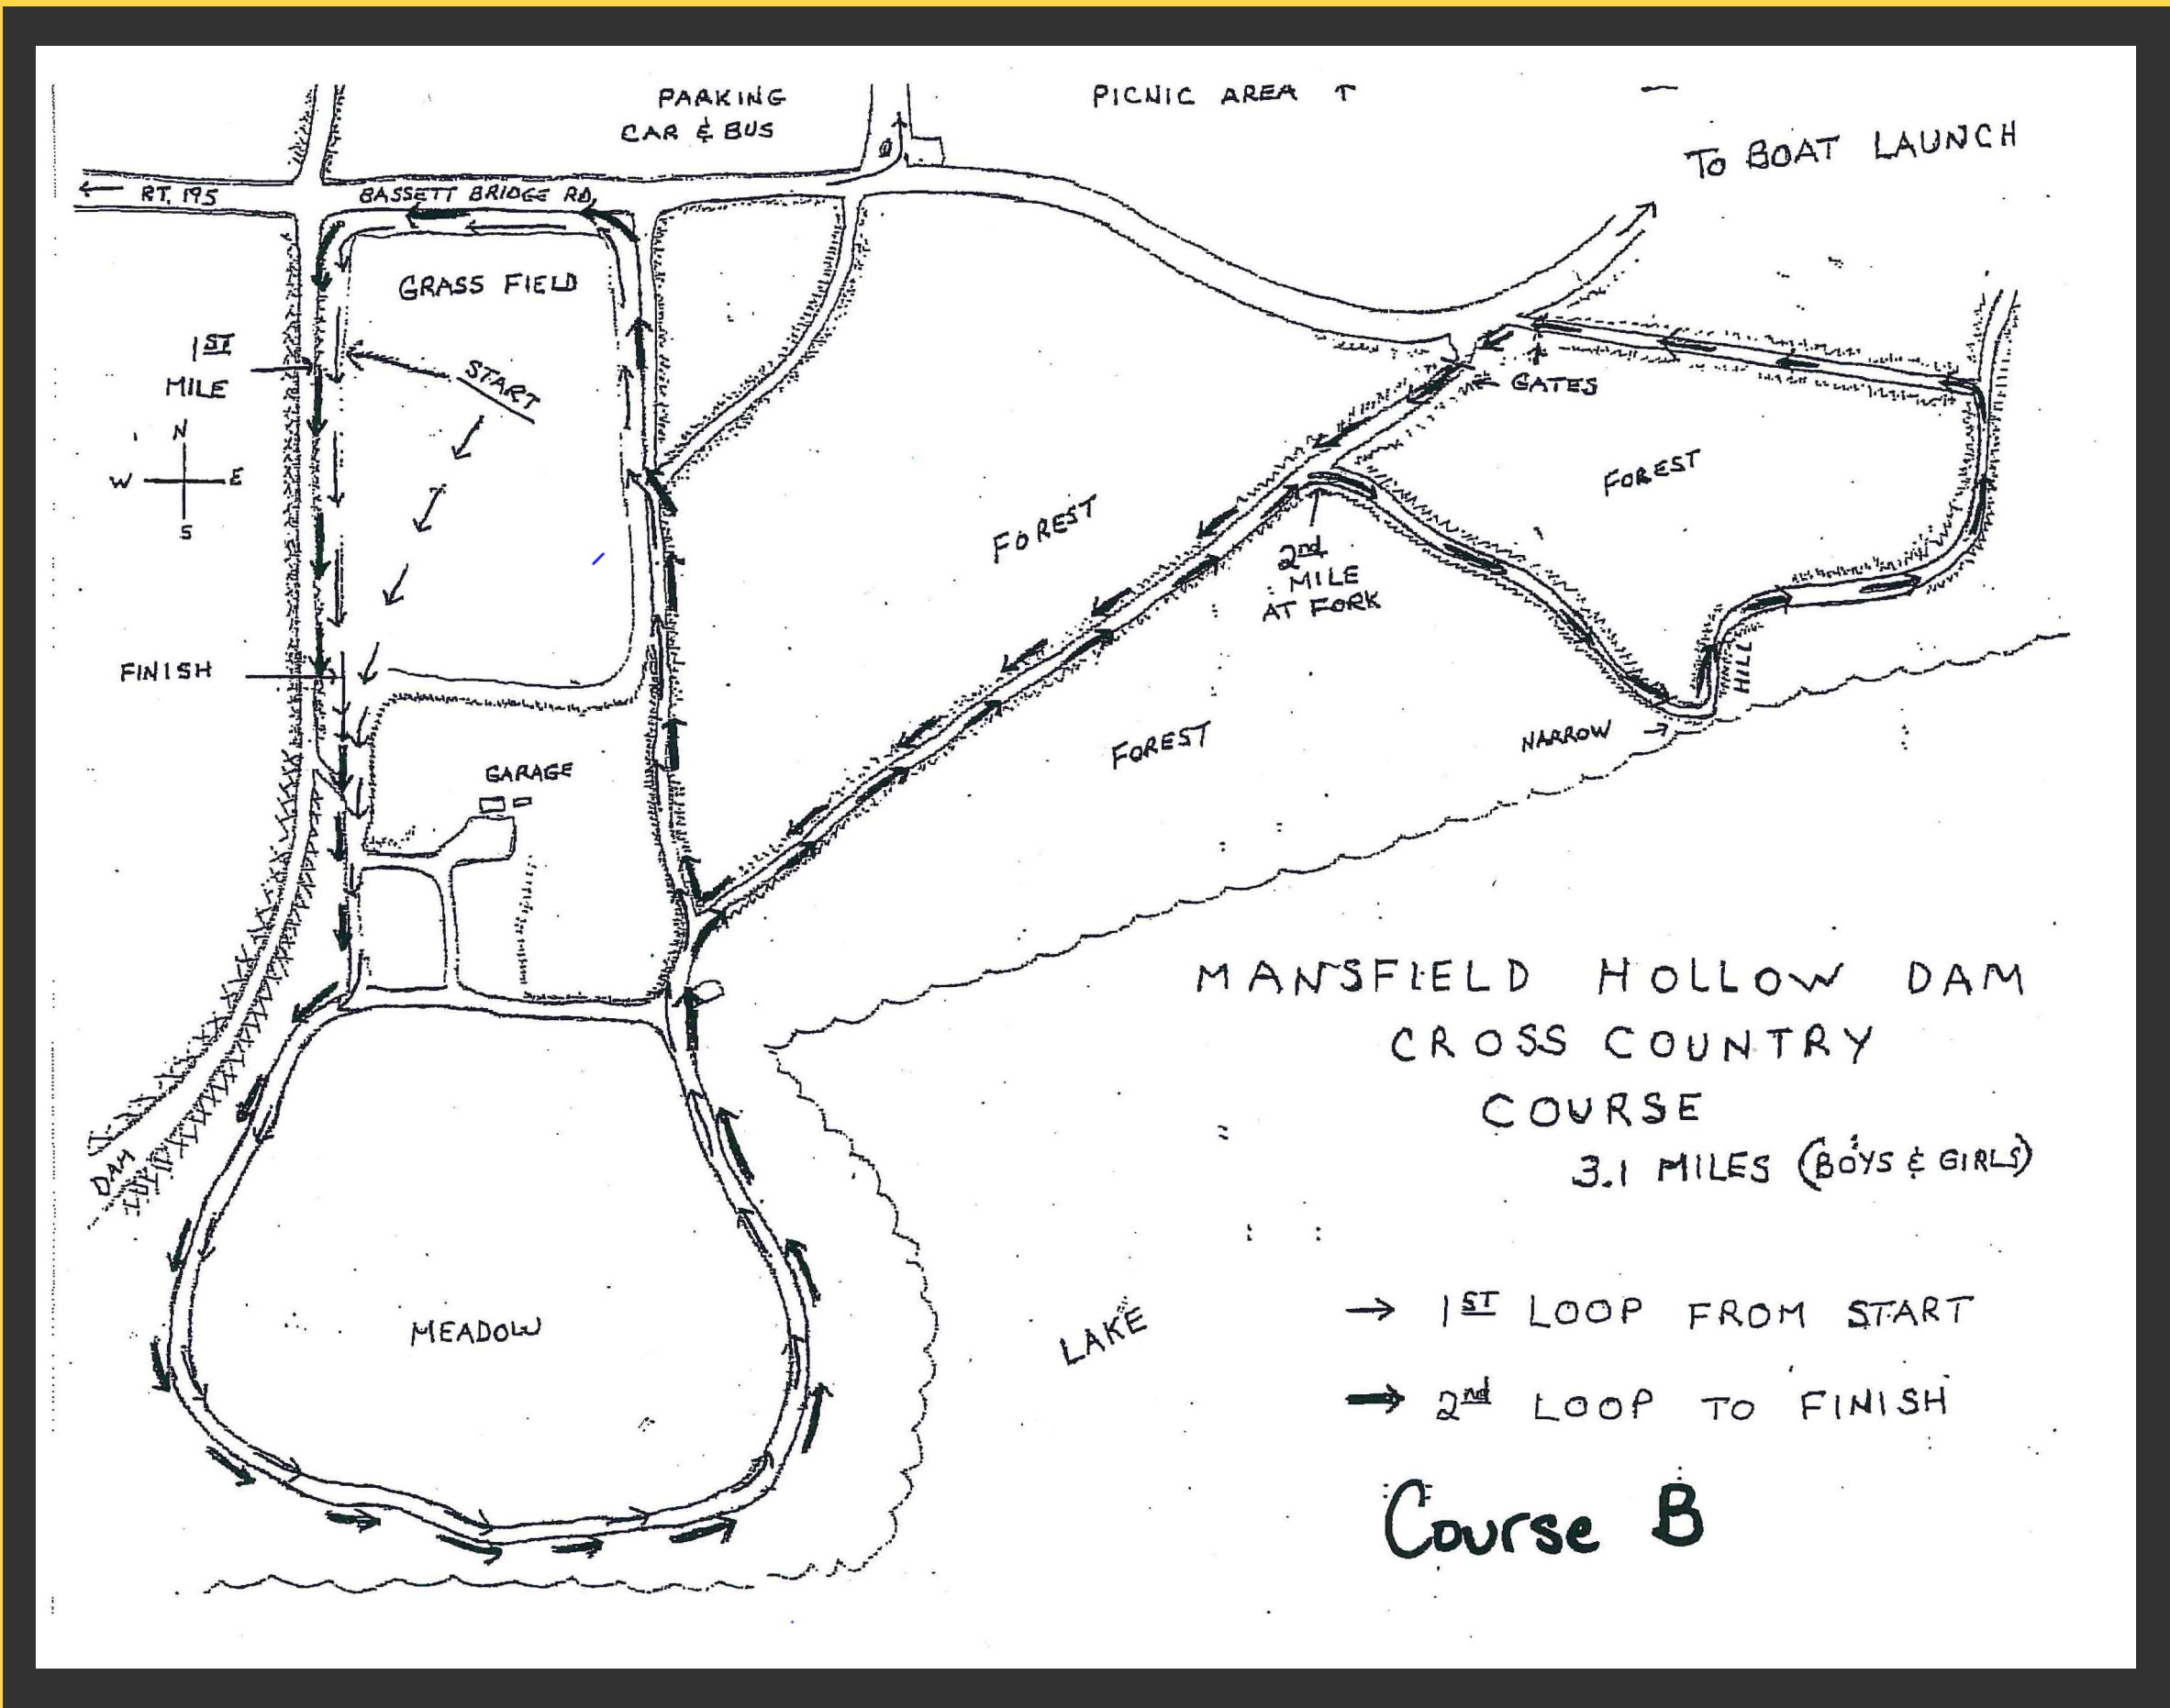 PARKING
CAR & BUS
PICNIC AREA ↑
TO BOAT LAUNCH
← RT. 195
BASSETT BRIDGE RD.
GRASS FIELD
1ST
MILE
START
N
W E
S
GATES
FOREST
FOREST
2nd
MILE
AT FORK
FINISH
HILL
NARROW →
FOREST
GARAGE
MANSFIELD HOLLOW DAM
CROSS COUNTRY
COURSE
3.1 MILES (BOYS & GIRLS)
DAM
MEADOW
LAKE
→ 1ST LOOP FROM START
→ 2nd LOOP TO FINISH
Course B